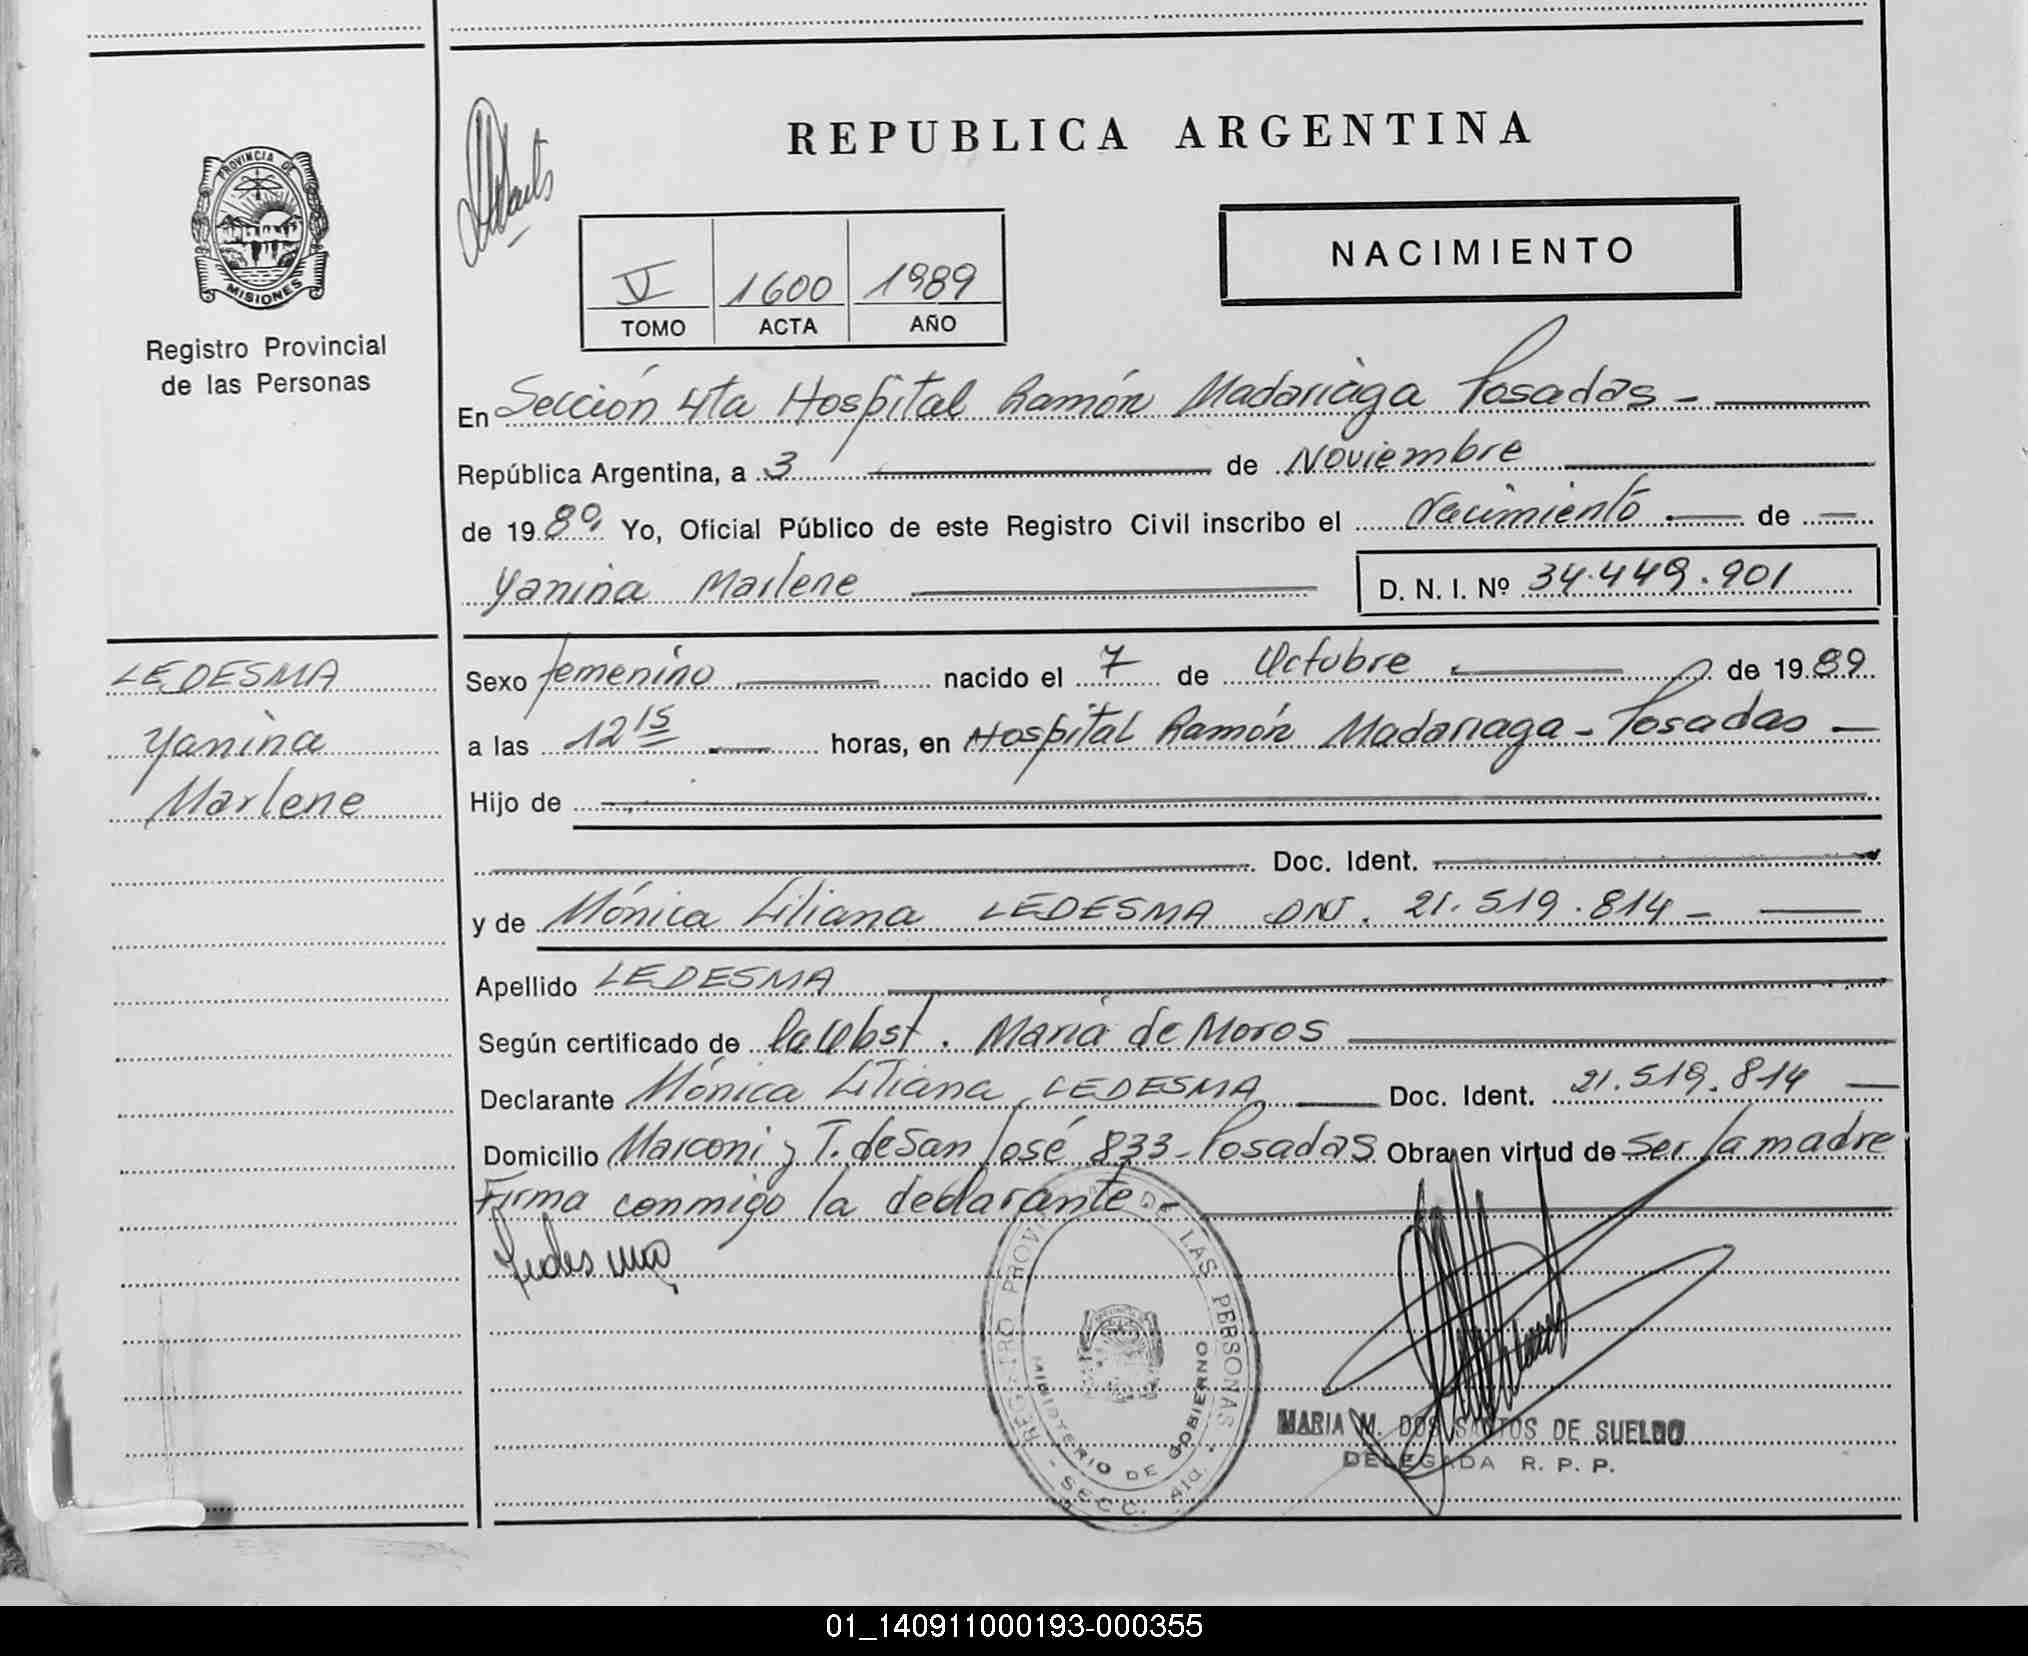 REPUBLICA ARGENTINA
NACIMIENTO
PROVINCIA DE
MISIONES
Registro Provincial
de las Personas
V 1600 1989
TOMO ACTA AÑO
En Sección 4ta Hospital Ramón Madariaga Posadas -
República Argentina, a 3 de Noviembre
de 1989 Yo, Oficial Público de este Registro Civil inscribo el Nacimiento de
Yanina Marlene D. N. I. Nº 34.449.901
LEDESMA
Yanina
Marlene
Sexo femenino nacido el 7 de Octubre de 1989
a las 12 15 horas, en Hospital Ramón Madariaga - Posadas -
Hijo de
Doc. Ident.
y de Mónica Liliana LEDESMA DNI. 21.519.814 -
Apellido LEDESMA
Según certificado de la Obst. María de Moros
Declarante Mónica Liliana LEDESMA Doc. Ident. 21.519.814
Domicilio Marconi y T. de San José 833 - Posadas Obra en virtud de ser la madre
Firma conmigo la declarante -
Ledesma
REGISTRO PROVINCIAL DE LAS PERSONAS
MINISTERIO DE GOBIERNO
- SECC. 4ta. -
MARIA M. DOS SANTOS DE SUELDO
DELEGADA R. P. P.
01_140911000193-000355